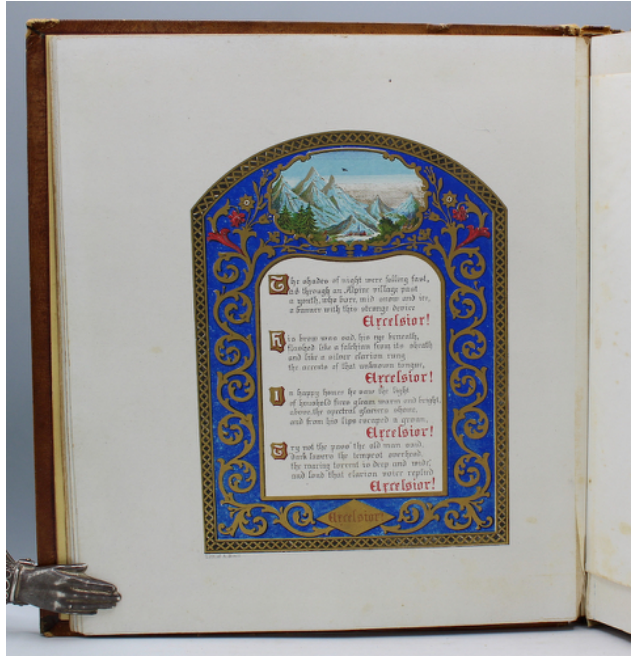 The shades of night were falling fast,
As through an Alpine village past
a youth, who bore, mid snow and ice,
a banner with this strange device
Excelsior!
His brow was sad, his eye beneath,
flashed like a falchion from its sheath
and like a silver clarion rung
the accents of that unknown tongue,
Excelsior!
In happy homes he saw the light
of household fires gleam warm and bright,
above, the spectral glaciers shone,
and from his lips escaped a groan,
Excelsior!
Try not the pass' the old man said,
dark lowers the tempest overhead,
the roaring torrent is deep and wide,'
and loud that clarion voice replied
Excelsior!
Excelsior!